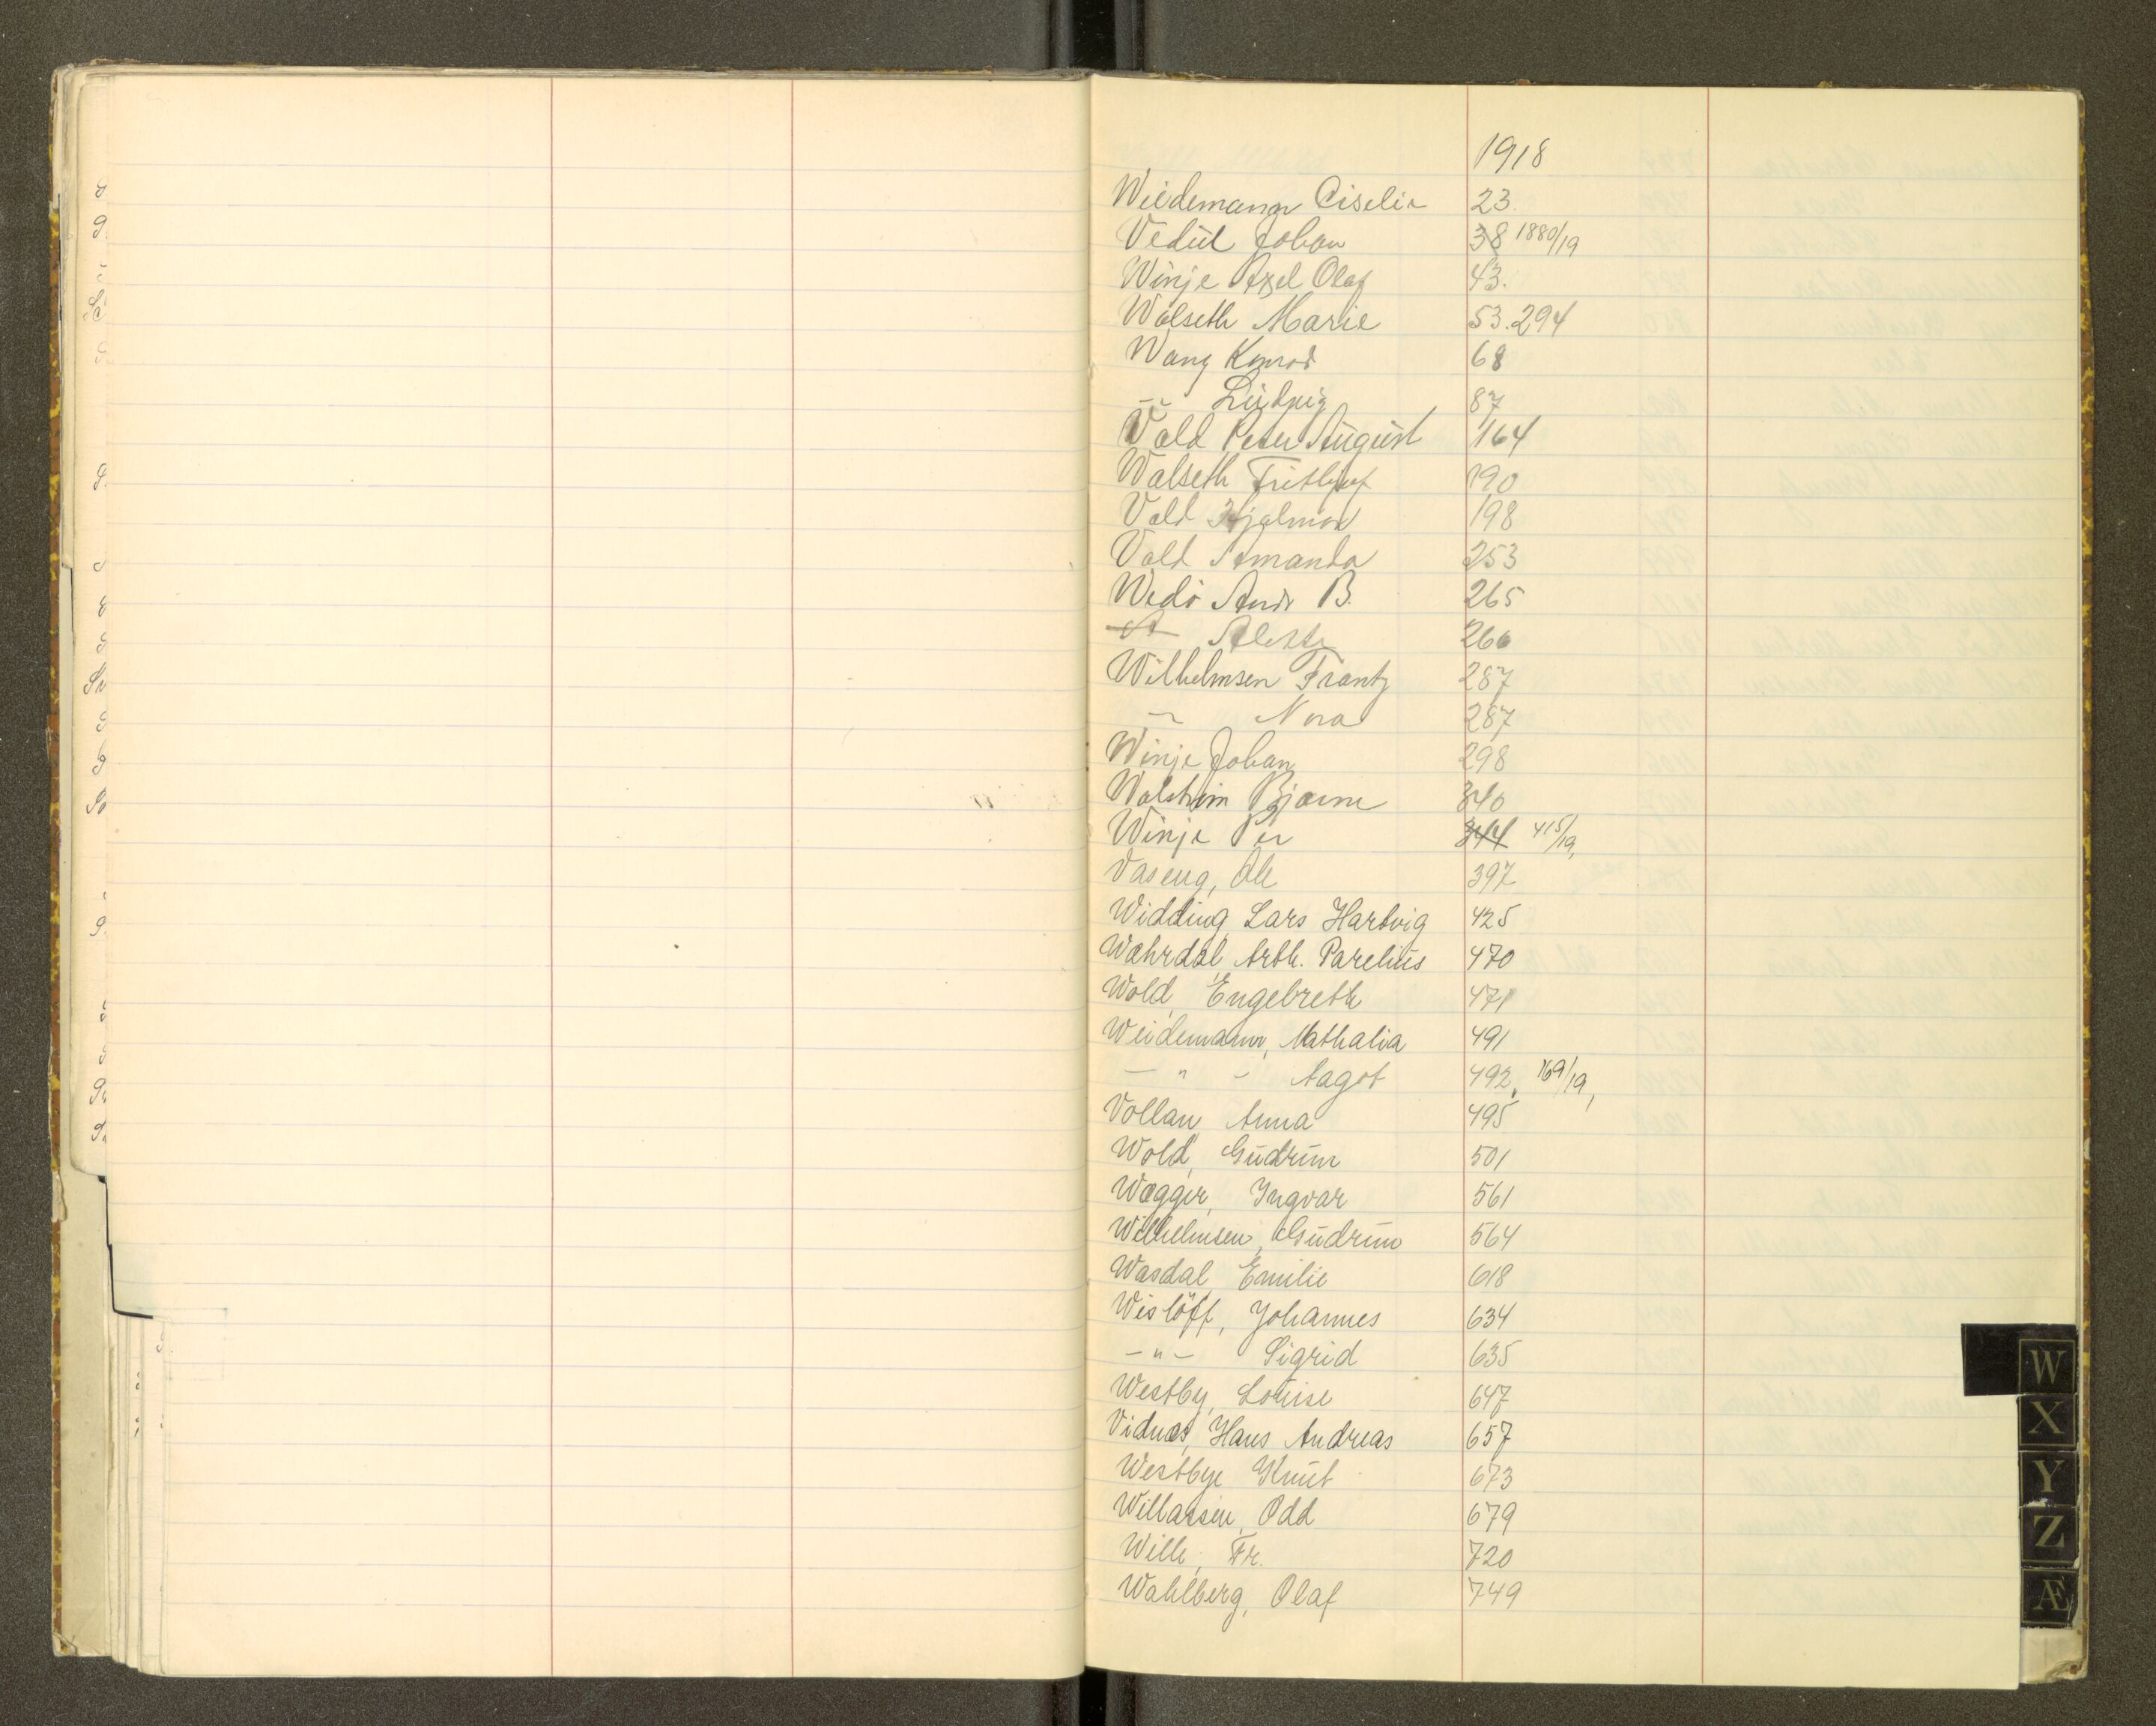 1918
Weidemann Ciselia 23.
Vedul Johan 38 1880/19
Winje Axel Olaf 43.
Walseth Marie 53. 294
Wang Konrad 68
-"- Ludvig 87
Vold Peter August 164
Walseth Frithjof 190
Vold Hjalmar 198
Vold Amanda 253
Wedø Andr B. 265
266
Wilhelmsen Frantz 287
-"- Nora 287
Winje Johan 298
Walstrøm Bjarne 340
Winje Per 344 415/19,
Vaseng, Ole 397
Widding Lars Hartvig 425
Wæhrdal Arth. Parelius 470
Wold, Engebreth 471
Weidemann, Nathalia 491
- " - Aagot 492, 169/19,
Vollan, Anna 495
Wold, Gudrun 501
Wægger, Ingvar 561
Wilhelmsen, Gudrun 564
Wasdal Emilie 618
Wisløff, Johannes 634
-"- Sigrid 635
Westby, Louise 647
Vidnes, Hans Andreas 657
Westbye Knut 673
Willassen, Odd 679
Wille, Fr. 720
Wahlberg, Olaf 749
W
X
Y
Z
Æ